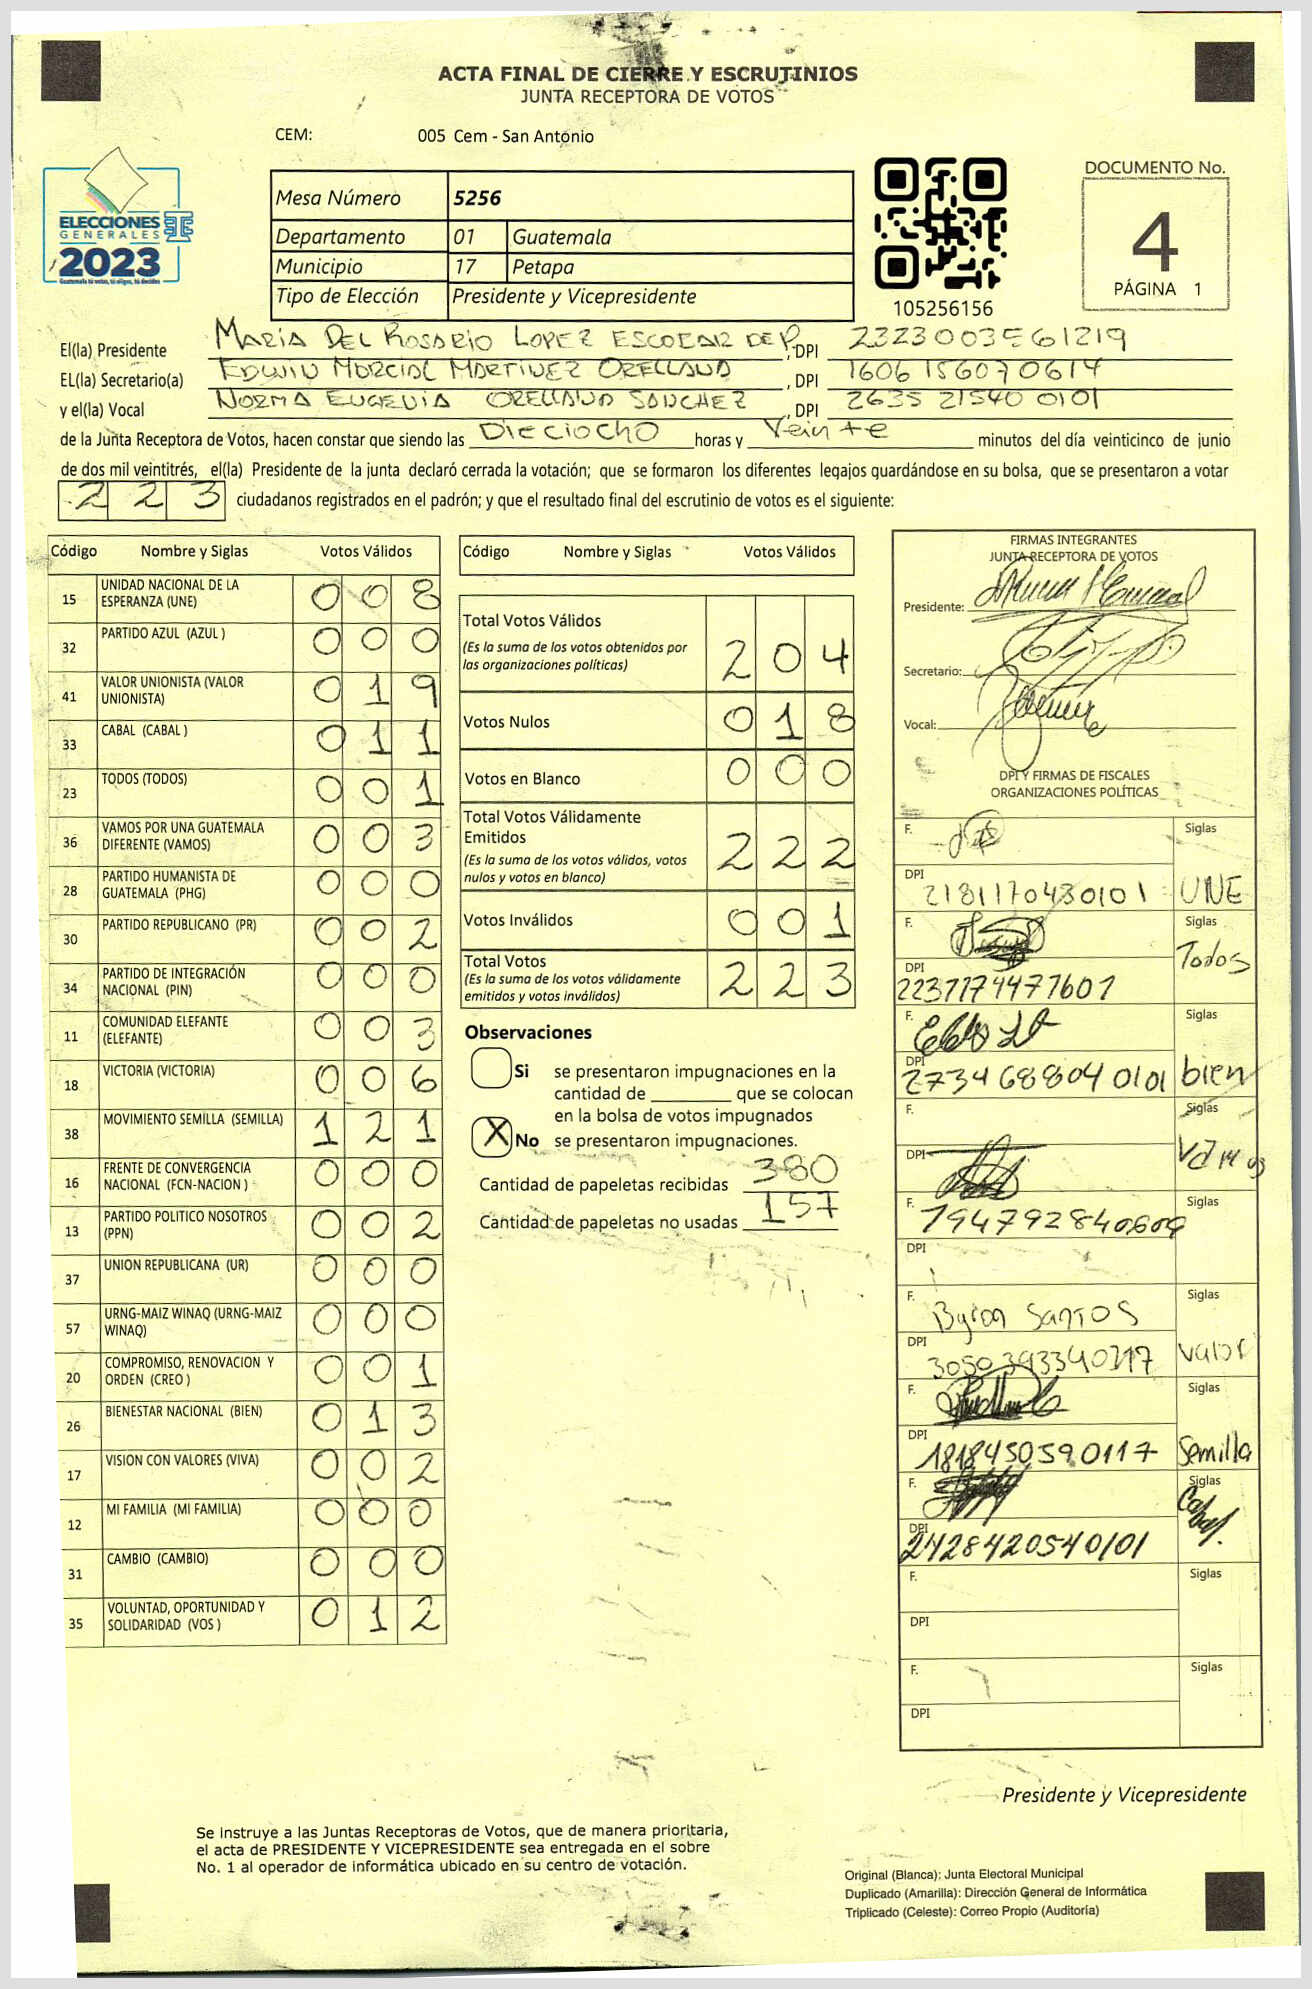 ACTA FINAL DE CIERRE Y ESCRUTINIOS
JUNTA RECEPTORA DE VOTOS
CEM: 005 Cem - San Antonio
ELECCIONES
GENERALES
2023
Guatemala tú votas, tú eliges, tú decides
Mesa Número 5256
Departamento 01 Guatemala
Municipio 17 Petapa
Tipo de Elección Presidente y Vicepresidente
105256156
DOCUMENTO No.
4
PÁGINA 1
El(la) Presidente MARIA DEL ROSARIO LOPEZ ESCOBAR DE P. , DPI 2323003561219
EL(la) Secretario(a) EDWIN MARCIAL MARTINEZ ORELLANA , DPI 1606156070614
y el(la) Vocal NORMA EUGENIA ORELLANA SANCHEZ , DPI 2635 21540 0101
de la Junta Receptora de Votos, hacen constar que siendo las Dieciocho horas y Veinte minutos del día veinticinco de junio
de dos mil veintitrés, el(la) Presidente de la junta declaró cerrada la votación; que se formaron los diferentes legajos guardándose en su bolsa, que se presentaron a votar
223 ciudadanos registrados en el padrón; y que el resultado final del escrutinio de votos es el siguiente:
Código Nombre y Siglas Votos Válidos
15 UNIDAD NACIONAL DE LA ESPERANZA (UNE) 008
32 PARTIDO AZUL (AZUL ) 000
41 VALOR UNIONISTA (VALOR UNIONISTA) 019
33 CABAL (CABAL ) 011
23 TODOS (TODOS) 001
36 VAMOS POR UNA GUATEMALA DIFERENTE (VAMOS) 003
28 PARTIDO HUMANISTA DE GUATEMALA (PHG) 000
30 PARTIDO REPUBLICANO (PR) 002
34 PARTIDO DE INTEGRACIÓN NACIONAL (PIN) 000
11 COMUNIDAD ELEFANTE (ELEFANTE) 003
18 VICTORIA (VICTORIA) 006
38 MOVIMIENTO SEMILLA (SEMILLA) 121
16 FRENTE DE CONVERGENCIA NACIONAL (FCN-NACION ) 000
13 PARTIDO POLITICO NOSOTROS (PPN) 002
37 UNION REPUBLICANA (UR) 000
57 URNG-MAIZ WINAQ (URNG-MAIZ WINAQ) 000
20 COMPROMISO, RENOVACION Y ORDEN (CREO ) 001
26 BIENESTAR NACIONAL (BIEN) 013
17 VISION CON VALORES (VIVA) 002
12 MI FAMILIA (MI FAMILIA) 000
31 CAMBIO (CAMBIO) 000
35 VOLUNTAD, OPORTUNIDAD Y SOLIDARIDAD (VOS ) 012
Código Nombre y Siglas Votos Válidos
Total Votos Válidos
(Es la suma de los votos obtenidos por
las organizaciones políticas) 204
Votos Nulos 018
Votos en Blanco 000
Total Votos Válidamente
Emitidos
(Es la suma de los votos válidos, votos
nulos y votos en blanco) 222
Votos Inválidos 001
Total Votos
(Es la suma de los votos válidamente
emitidos y votos inválidos) 223
Observaciones
Si se presentaron impugnaciones en la
cantidad de ________ que se colocan
en la bolsa de votos impugnados
X No se presentaron impugnaciones.
Cantidad de papeletas recibidas 380
Cantidad de papeletas no usadas 157
FIRMAS INTEGRANTES
JUNTA RECEPTORA DE VOTOS
Presidente:
Secretario:
Vocal:
DPI Y FIRMAS DE FISCALES
ORGANIZACIONES POLÍTICAS
F. Siglas
DPI 2181170430101 UNE
F. Siglas
DPI 2237174477601 Todos
F. Siglas
DPI 2734688040101 bien
F. Siglas
DPI Vamos
F. Siglas
194792840609
DPI
F. Byron Santos Siglas
DPI 3050393340117 Valor
F. Siglas
DPI 1818450590117 Semilla
F. Siglas
DPI 2428420540101 Cabal.
F. Siglas
DPI
F. Siglas
DPI
Presidente y Vicepresidente
Se instruye a las Juntas Receptoras de Votos, que de manera prioritaria,
el acta de PRESIDENTE Y VICEPRESIDENTE sea entregada en el sobre
No. 1 al operador de informática ubicado en su centro de votación.
Original (Blanca): Junta Electoral Municipal
Duplicado (Amarilla): Dirección General de Informática
Triplicado (Celeste): Correo Propio (Auditoría)